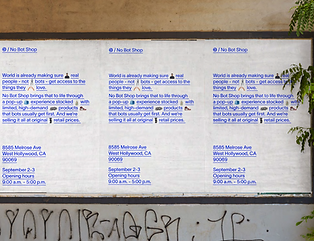 / No Bot Shop
World is already making sure real
people - not bots - get access to the
things they love.
No Bot Shop brings that to life through
a pop-up experience stocked with
limited, high-demand products
that bots usually get first. And we're
selling it all at original retail prices.
8585 Melrose Ave
West Hollywood, CA
90069
September 2-3
Opening hours
9:00 a.m. - 5:00 p.m.
/ No Bot Shop
World is already making sure real
people - not bots - get access to the
things they love.
No Bot Shop brings that to life through
a pop-up experience stocked with
limited, high-demand products
that bots usually get first. And we're
selling it all at original retail prices.
8585 Melrose Ave
West Hollywood, CA
90069
September 2-3
Opening hours
9:00 a.m. - 5:00 p.m.
/ No Bot Shop
World is already making sure real
people - not bots - get access to the
things they love.
No Bot Shop brings that to life through
a pop-up experience stocked with
limited, high-demand products
that bots usually get first. And we're
selling it all at original retail prices.
8585 Melrose Ave
West Hollywood, CA
90069
September 2-3
Opening hours
9:00 a.m. - 5:00 p.m.